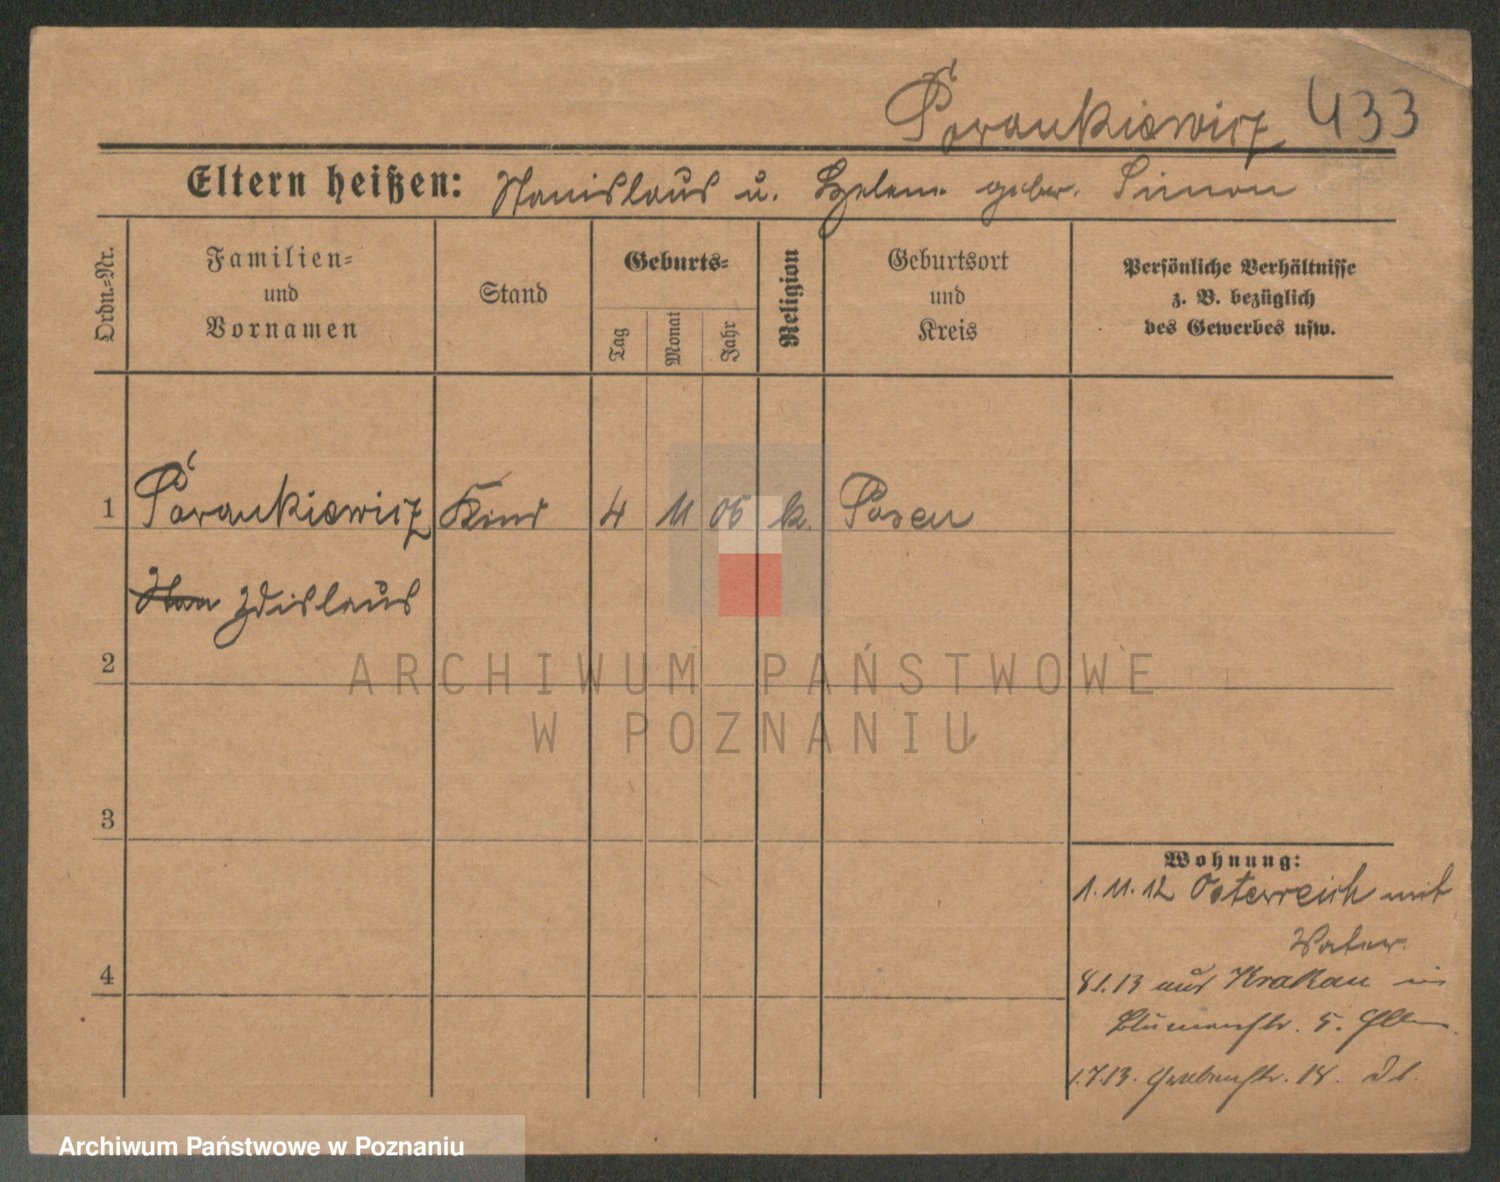 Porankiewicz 433
Eltern heißen: Stanislaus u. Helene gebor. Simon
Ordn.-Nr.
Familien-
und
Vornamen
Stand
Geburts-
Tag
Monat
Jahr
Religion
Geburtsort
und
Kreis
Persönliche Verhältnisse
z. B. bezüglich
des Gewerbes usw.
1 Porankiewicz Kind 4 11 05 k. Posen
Stan Zdislaus
2
3
4
Wohnung:
1.11.12 Österreich mit
Vater.
8.1.13 aus Krakau in
Blumenstr. 5. Elt.
1.7.13. Grabenstr. 14.
ARCHIWUM PAŃSTWOWE
W POZNANIU
Archiwum Państwowe w Poznaniu